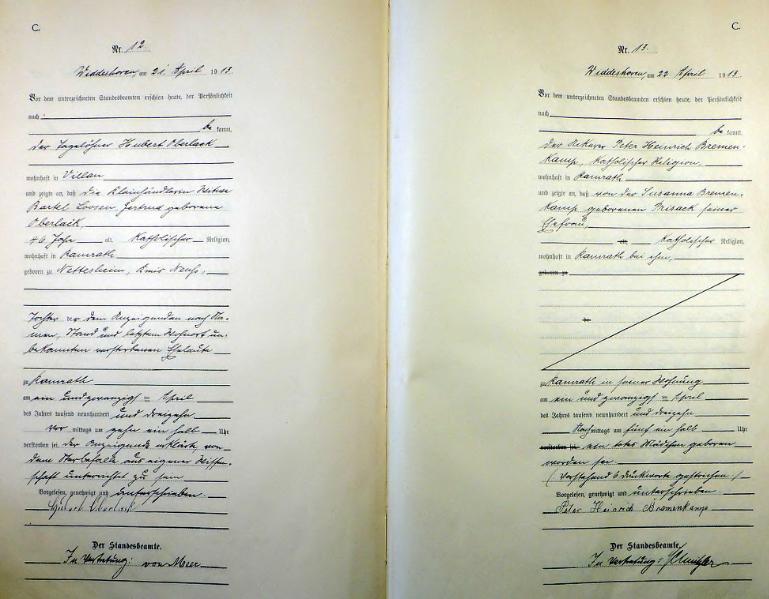 C.
Nr. 12.
Widdeshoven, am 21. April 1913.
Vor dem unterzeichneten Standesbeamten erschien heute, der Persönlichkeit
nach
be kannt,
der Tagelöhner Hubert Oberlack
wohnhaft in Villau
und zeigte an, daß die Kleinhändlerin Witwe
Bartel Loosen, Gertrud geborene
Oberlack,
46 Jahre alt, Katholischer Religion,
wohnhaft in Ramrath
geboren zu Nettesheim, Kreis Neuß,
Tochter der dem Anzeigenden nach Na-
men, Stand und letztem Wohnort un-
bekannten verstorbenen Eheleute
zu Ramrath
am ein und zwanzigsten April
des Jahres tausend neunhundert und dreizehn
vor mittags um zehn ein halb Uhr
verstorben sei. Der Anzeigende erklärte, von
dem Sterbefalle aus eigener Wissen-
schaft unterrichtet zu sein
Vorgelesen, genehmigt und unterschrieben
Hubert Oberlack
Der Standesbeamte.
In Vertretung: von Meer
C.
Nr. 13.
Widdeshoven, am 22. April 1913.
Vor dem unterzeichneten Standesbeamten erschien heute, der Persönlichkeit
nach
be kannt,
der Ackerer Peter Heinrich Bremen-
kamp, Katholischer Religion,
wohnhaft in Ramrath
und zeigte an, daß von der Susanna Bremen-
kamp geborenen Brisack seiner
Ehefrau,
alt, Katholischer Religion,
wohnhaft in Ramrath bei ihm,
geboren zu
zu Ramrath in seiner Wohnung
am ein und zwanzigsten April
des Jahres tausend neunhundert und dreizehn
Nachmittags um fünf ein halb Uhr
verstorben sei ein totes Mädchen geboren
worden sei
(Vorstehend 6 Druckworte gestrichen.)
Vorgelesen, genehmigt und unterschrieben
Peter Heinrich Bremenkamp
Der Standesbeamte.
In Vertretung: